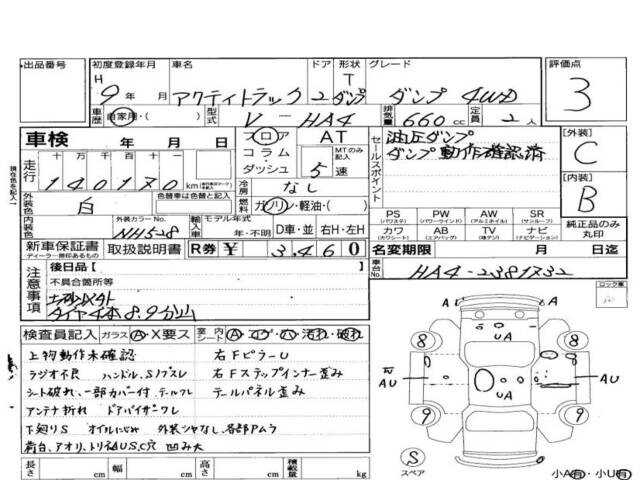 出品番号 初度登録年月 車名 ドア 形状 グレード 評価点
H 9年 月 アクティトラック 2 Tダンプ ダンプ 4WD 3
車歴 自家用・( ) 型式 V-HA4 排気量 660cc 定員 2人
車検 年 月 日 フロア AT 油圧ダンプ [外装]
コラム・ MTのみ記入 ダンプ動作確認済 C
走行 十万 万 千 百 十 一 ダッシュ 5速 セールスポイント
140170km 冷房 なし [内装]
外装色 白 色替車は色替と記入 燃料 ガソリン・軽油・( ) B
内装色 外装カラーNo. NH528 輸入車 モデル年式 年・不明 D車・並 右H・左H
PS PW AW SR 純正品のみ丸印
(パワステ) (パワーウインド) (アルミホイル) (サンルーフ)
カワ AB TV ナビ
(カワシート) (エアバッグ) (地デジ) (ナビゲーション)
新車保証書 取扱説明書 R券 ¥ 3,460 名変期限 月 日迄
ディーラー捺印あるもの
車台No. HA4-2381732
注意事項 後日品[ ] ロック車
不具合箇所等
タイヤ4本8.9分山
検査員記入 ガラス A・X要ス 室内シート A・コゲ・穴・汚れ・破れ
上物動作未確認 右FピラーU
ラジオ不良 ハンドル、Sノブスレ 右Fステップインナー歪み
シート破れ、一部カバー付 テールパネル歪み
アンテナ折れ ドアバイザーワレ
下廻りS オイルにじみ 外装シャなし、各部アムラ
荷台、アオリ、トリイAUS、穴 凹み大
長さ cm 幅 cm 高さ cm 積載量 kg
U A
8 8
A A AU
AU
9 9
U
S
スペア
小A有・小U有